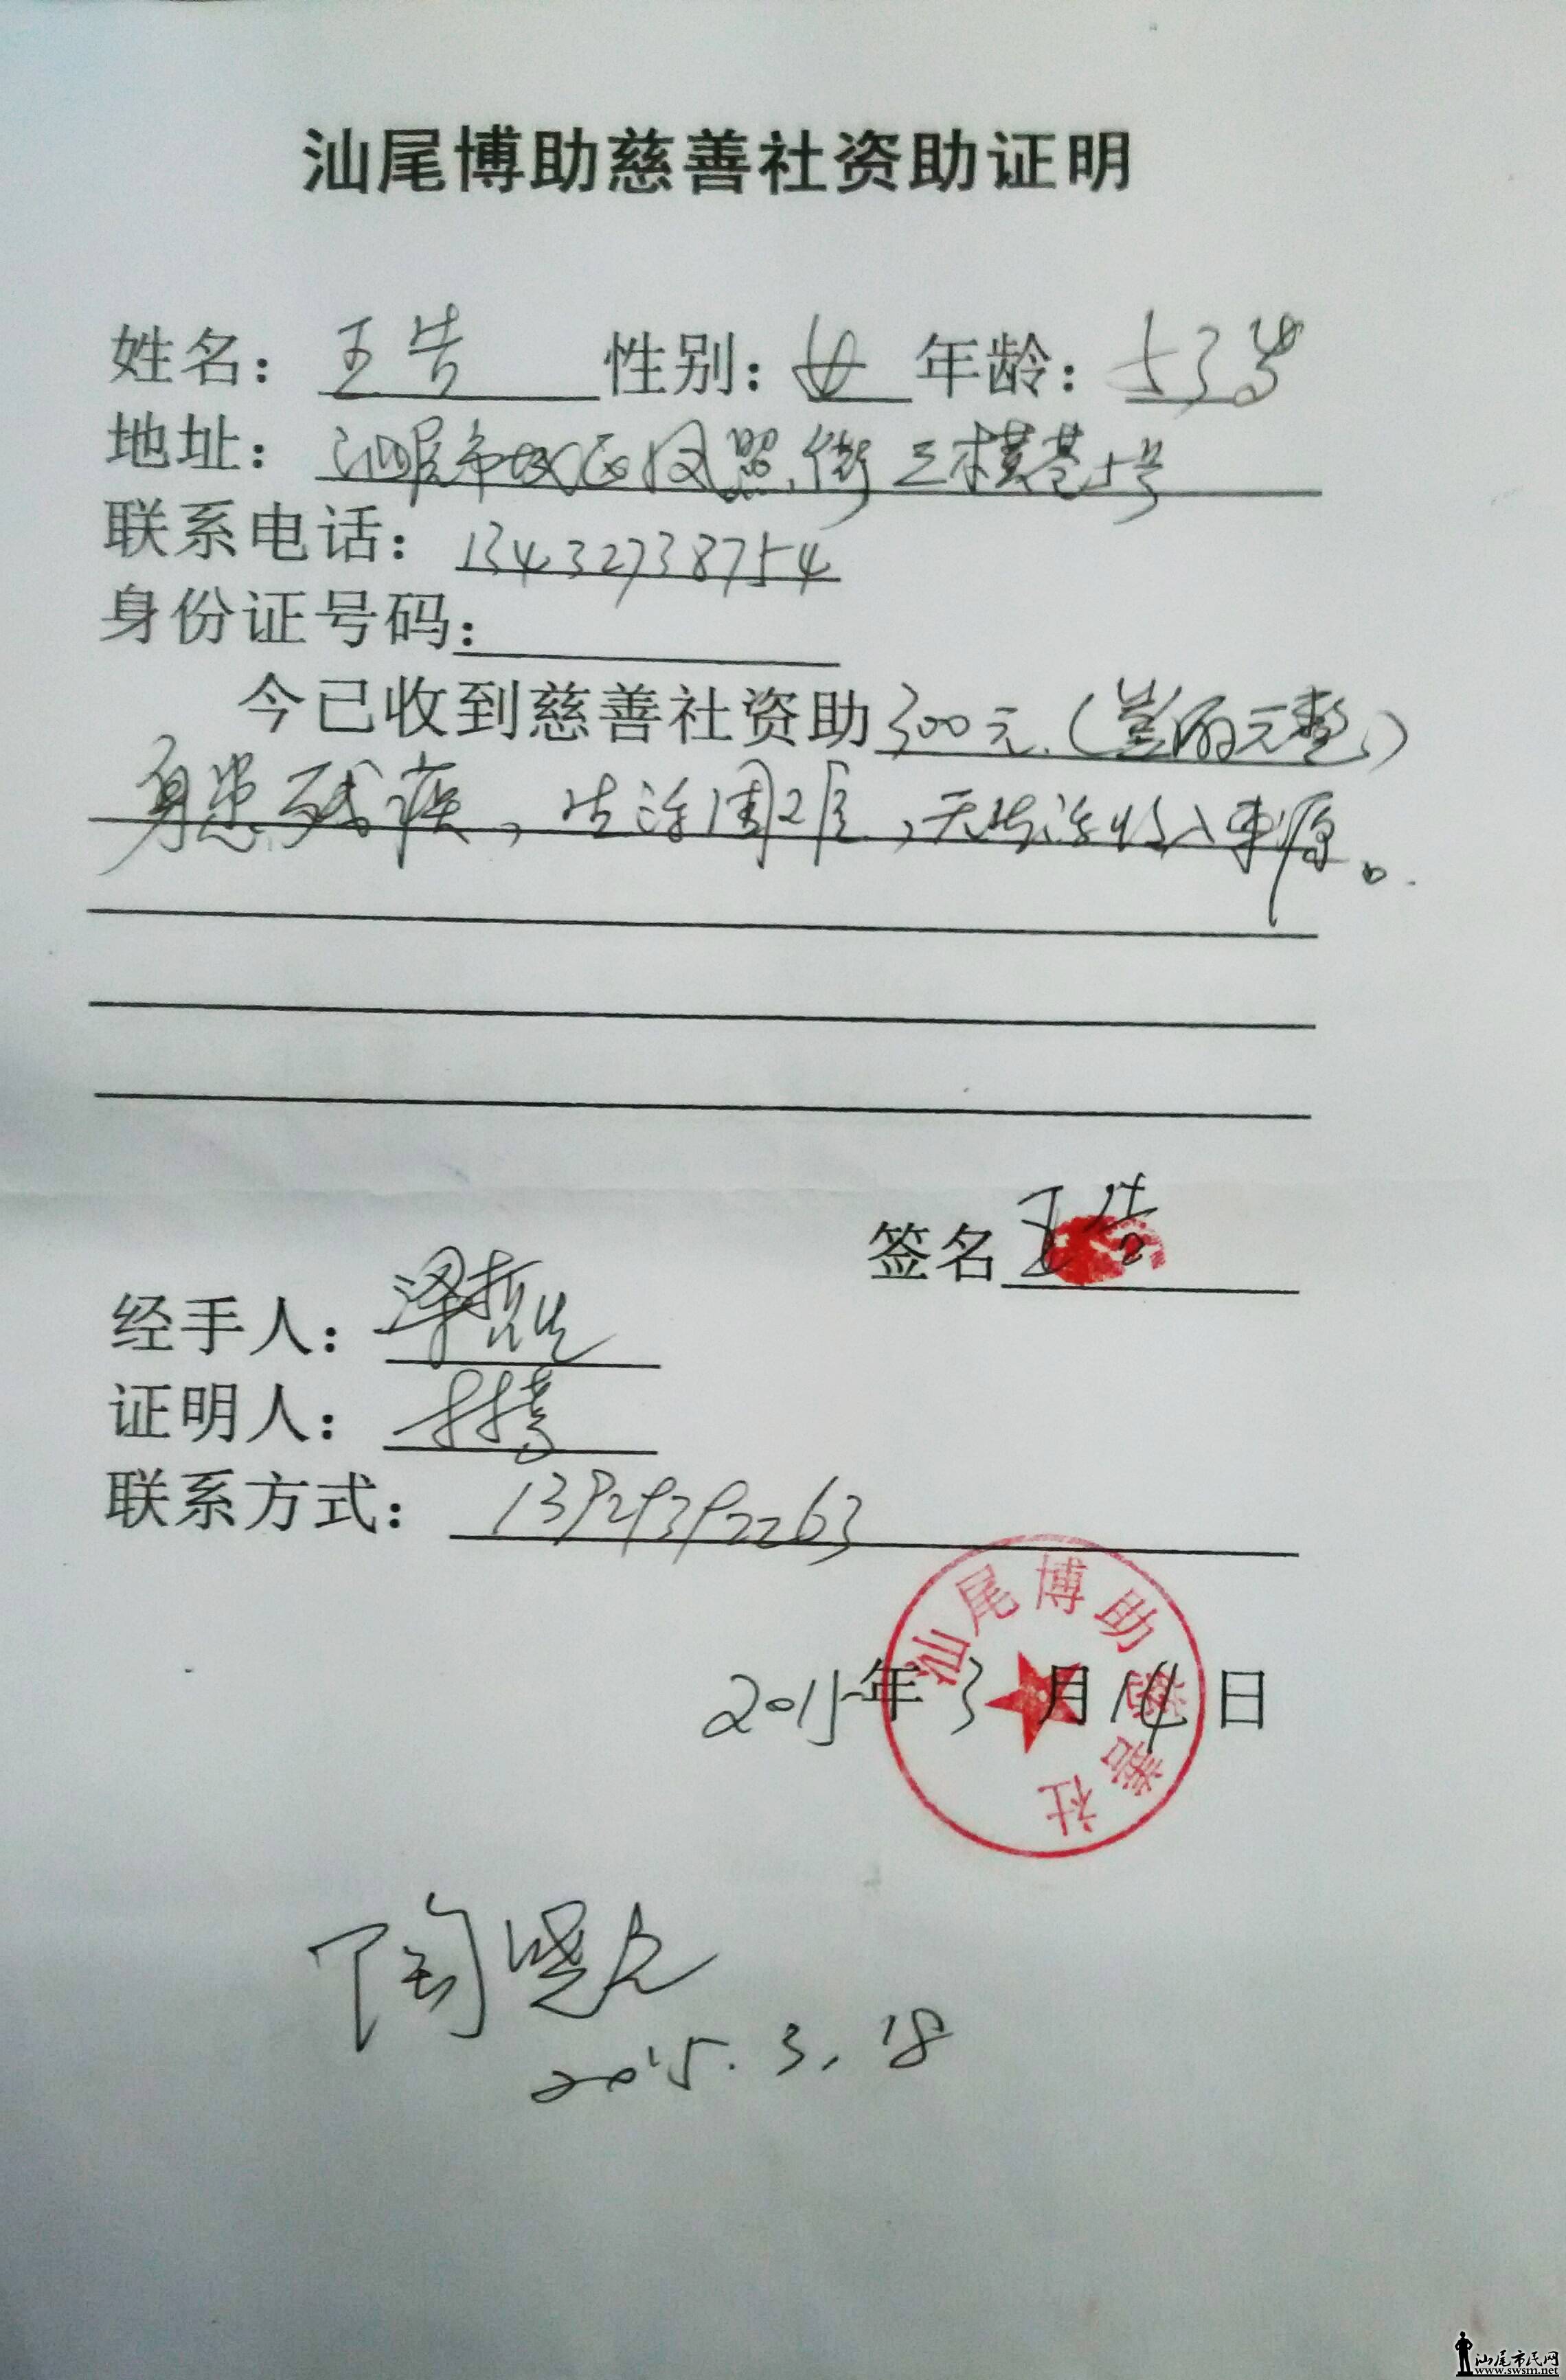 汕尾博助慈善社资助证明
姓名：王告 性别：女 年龄：53岁
地址：汕尾市城区凤照街三横巷十号
联系电话：13432738754
身份证号码：
今已收到慈善社资助300元（叁佰元整）
身患残疾，生活困难，无生活收入来源。
签名 王
经手人：
证明人：
联系方式：13929392263
2015年3月14日
汕尾博助慈善社
陶
2015.3.18
汕尾市民网
www.swsm.net